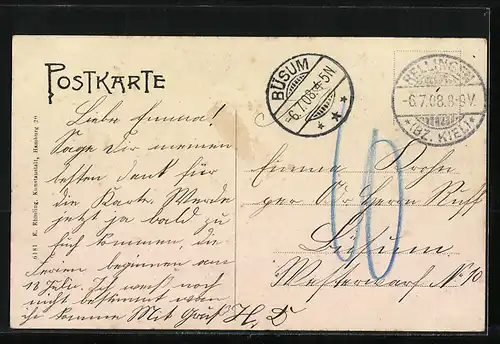 POSTKARTE
BÜSUM
-6.7.08.4-5N
HELLINGEN
-6.7.08.8-9V.
*(BZ. KIEL)*
Liebe Emma!
Sage Dir meinen
besten Dank für
die Karte. Werde
jetzt ja bald zu
Euch kommen, die
Ferien beginnen am
18 Juli. Ich weiß noch
nicht bestimmt wan
ich komme Mit Gruß H. D
Emma
Herrn
Büsum
Westerwarf № 10
10
6181 Kunstanstalt, Hamburg 20